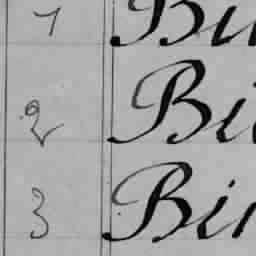 1 Bi
2 Bi
3 Bin